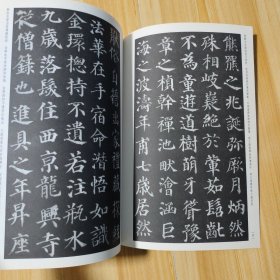 熊羆之兆誕弥厥月炳然
殊相岐嶷絕於葷茹髫齓
不為童遊道樹萌牙聳豫
章之楨榦禪池畎澮涵巨
海之波濤年甫七歲居然
俗自誓出家禮藏探經
法華在手宿命潛悟如識
金環揔持不遺若注瓶水
九歲落髮住西京龍興寺
從僧籙也進具之年昇座